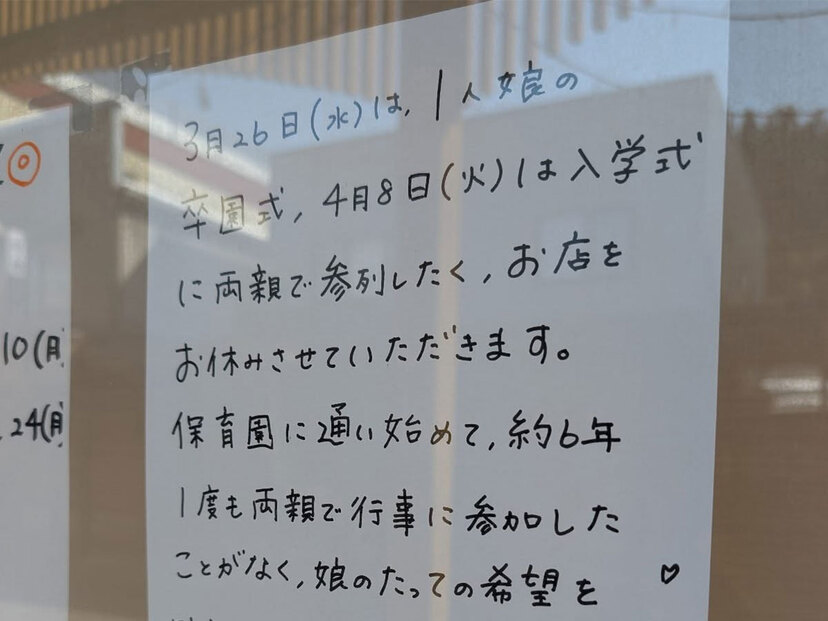 3月26日(水)は、1人娘の
卒園式、4月8日(火)は入学式
に両親で参列したく、お店を
お休みさせていただきます。
保育園に通い始めて、約6年
1度も両親で行事に参加した
ことがなく、娘のたっての希望を
10(月)
24(月)